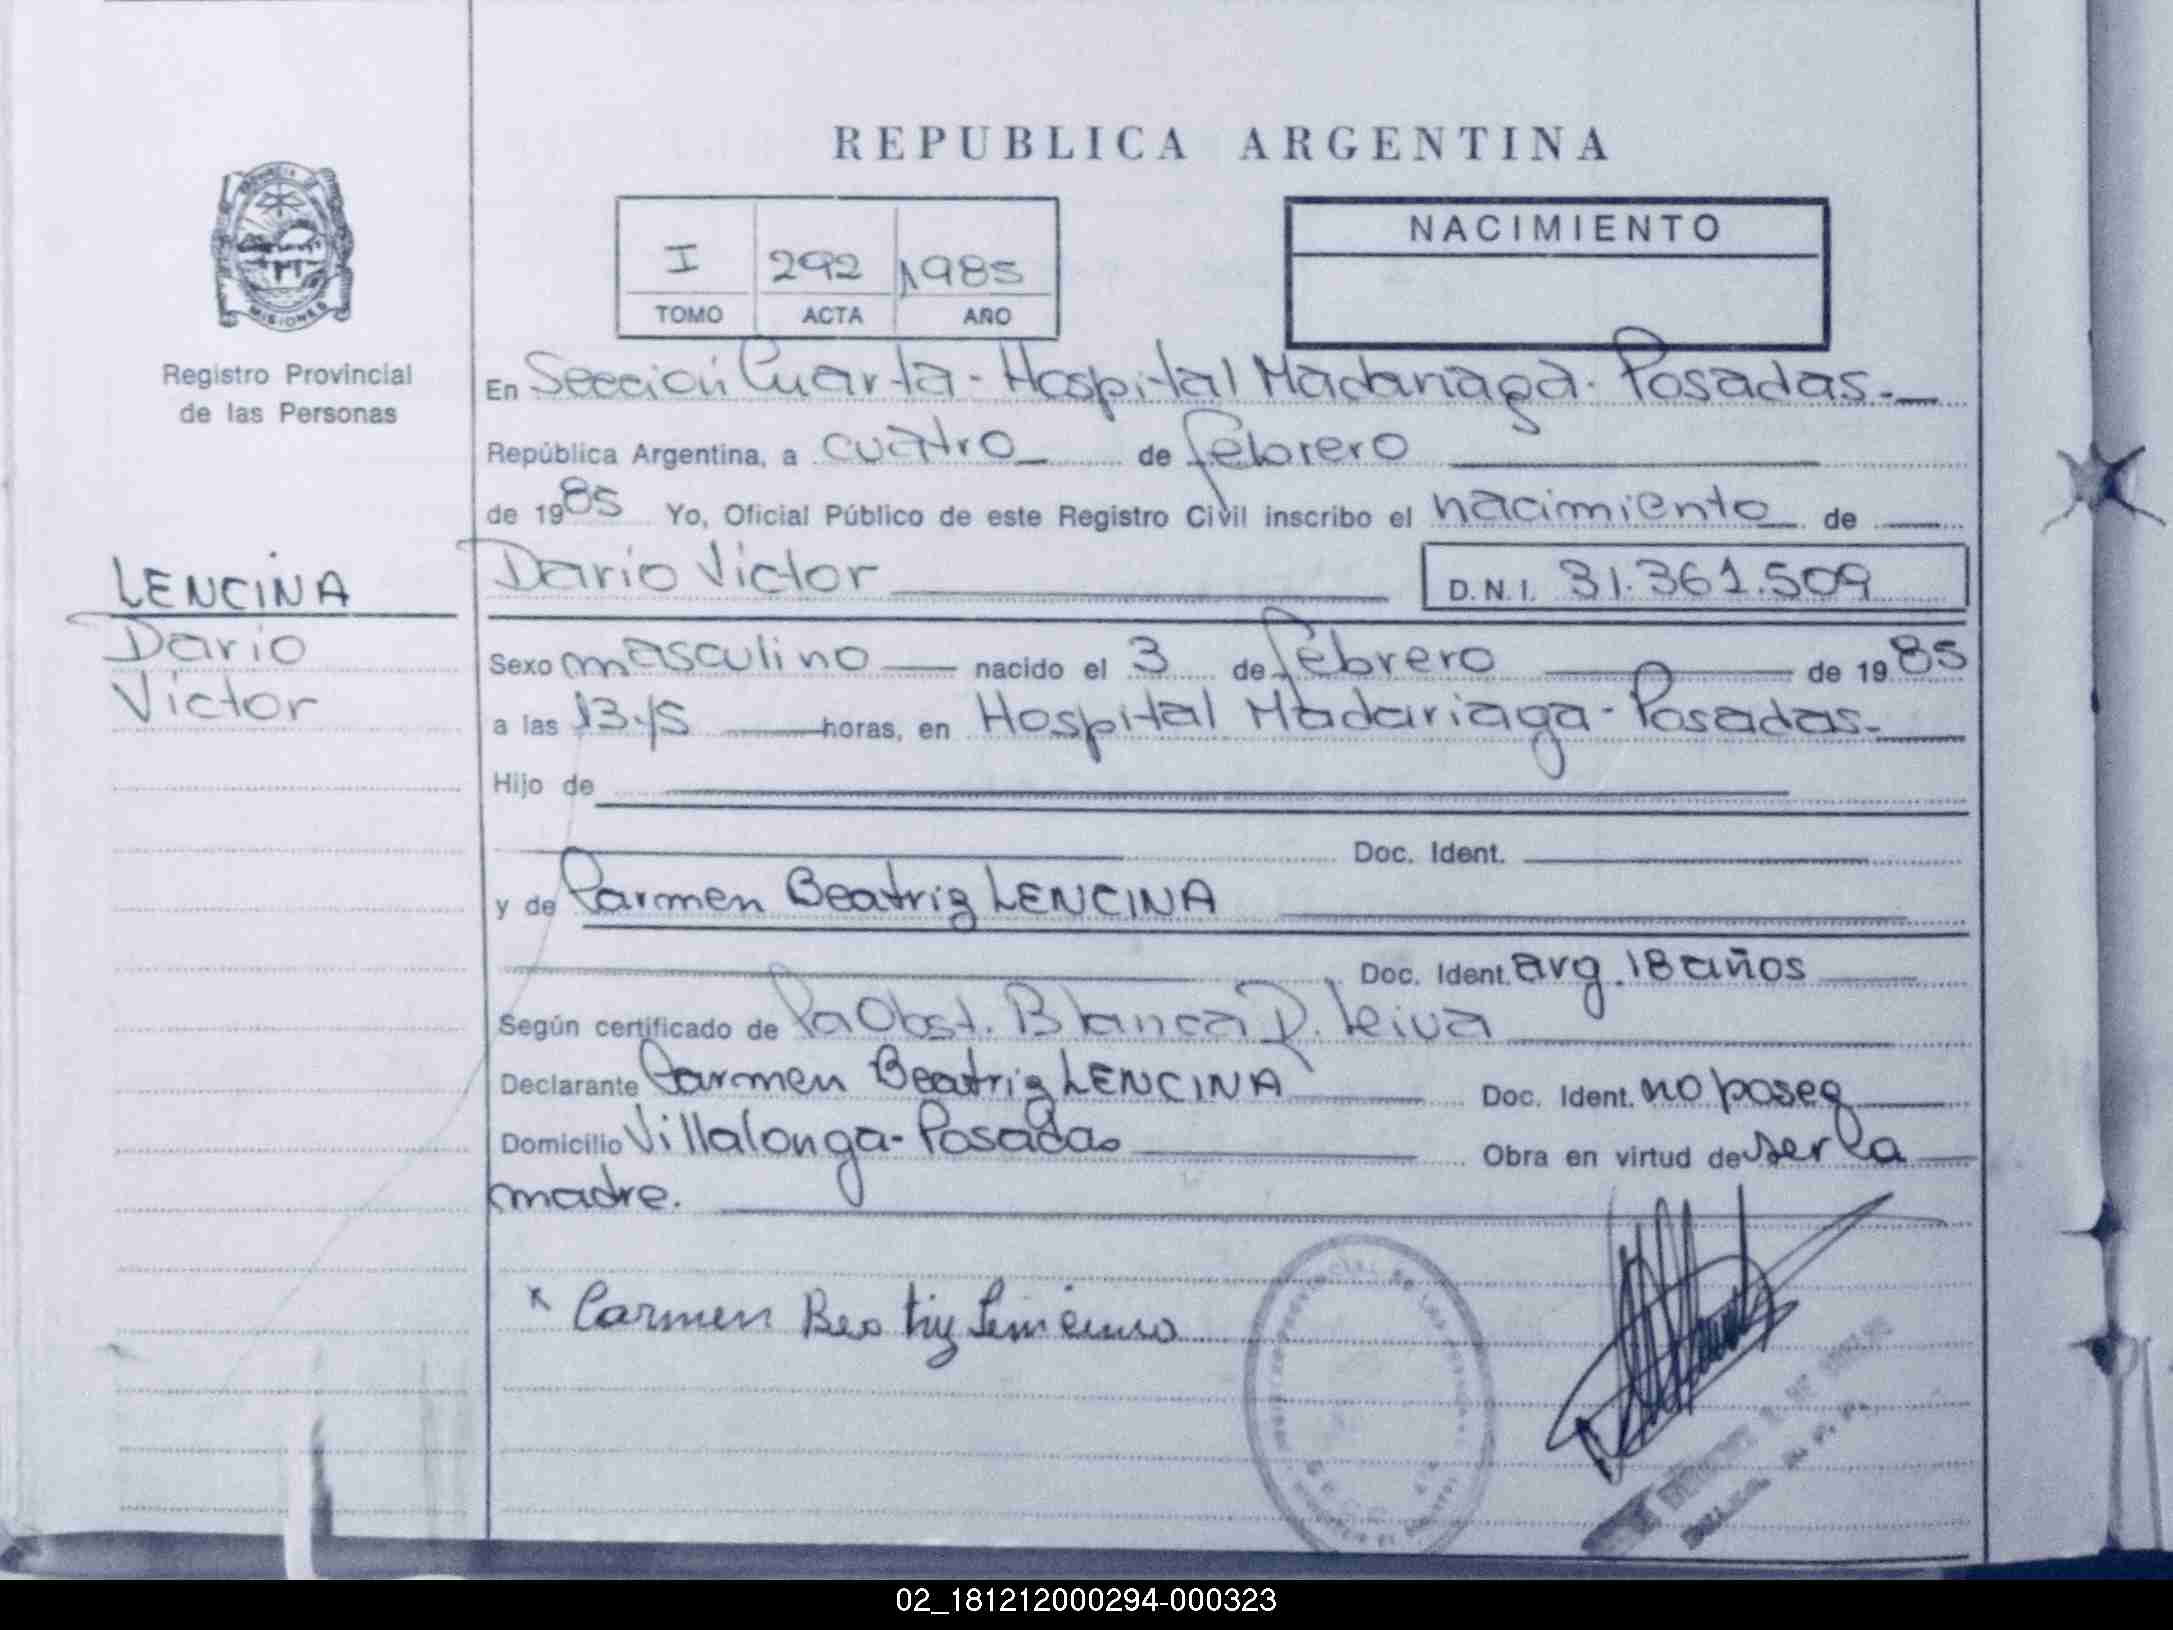 REPUBLICA ARGENTINA
PROVINCIA DE
MISIONES
Registro Provincial
de las Personas
I 292 1985
TOMO ACTA AÑO
NACIMIENTO
En Sección Cuarta - Hospital Madariaga - Posadas.-
República Argentina, a cuatro de febrero
de 1985 Yo, Oficial Público de este Registro Civil inscribo el nacimiento de
LENCINA
Dario Victor D.N.I. 31.361.509
Dario
Victor
Sexo masculino nacido el 3 de febrero de 1985
a las 13.15 horas, en Hospital Madariaga - Posadas.-
Hijo de
Doc. Ident.
y de Carmen Beatriz LENCINA
Doc. Ident. arg. 18 años
Según certificado de la Obst. Blanca R. Leiva
Declarante Carmen Beatriz LENCINA Doc. Ident. no posee
Domicilio Villalonga - Posadas Obra en virtud de ser la
madre.
x Carmen Beatriz
02_181212000294-000323